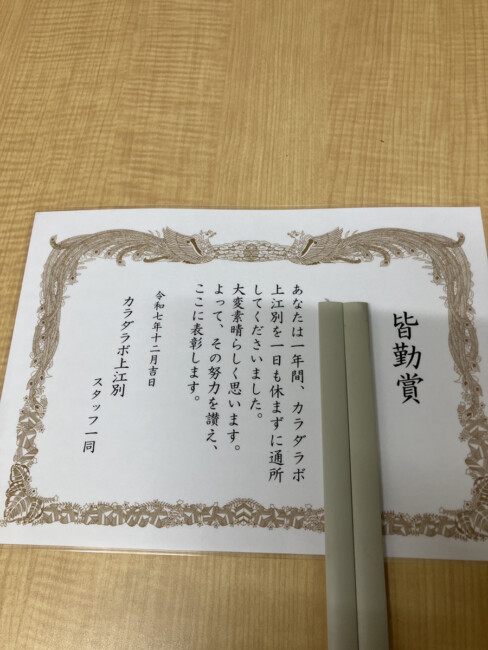 皆勤賞
あなたは一年間、カラダラボ
上江別を一日も休まずに通所
してくださいました。
大変素晴らしく思います。
よって、その努力を讃え、
ここに表彰します。
令和七年十二月吉日
カラダラボ上江別
スタッフ一同